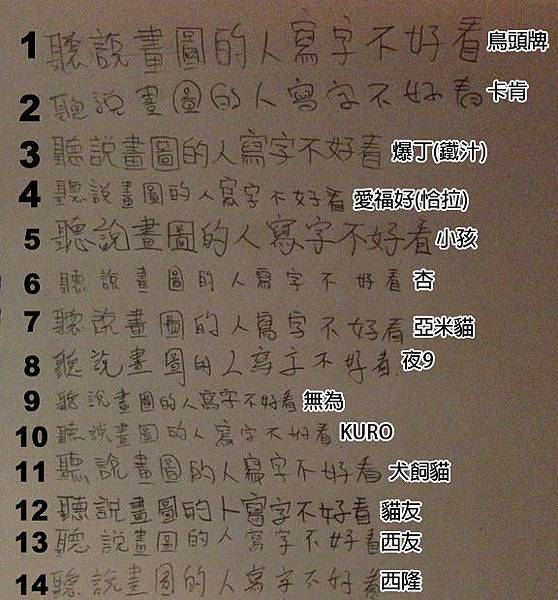 1 聽說畫圖的人寫字不好看 鳥頭牌
2 聽說畫圖的人寫字不好看 卡肯
3 聽說畫圖的人寫字不好看 爆丁(鐵汁)
4 聽說畫圖的人寫字不好看 愛福好(恰拉)
5 聽說畫圖的人寫字不好看 小孩
6 聽說畫圖的人寫字不好看 杏
7 聽說畫圖的人寫字不好看 亞米貓
8 聽說畫圖的人寫字不好看 夜9
9 聽說畫圖的人寫字不好看 無為
10 聽說畫圖的人寫字不好看 KURO
11 聽說畫圖的人寫字不好看 犬飼貓
12 聽說畫圖的人寫字不好看 貓友
13 聽說畫圖的人寫字不好看 西友
14 聽說畫圖的人寫字不好看 西隆